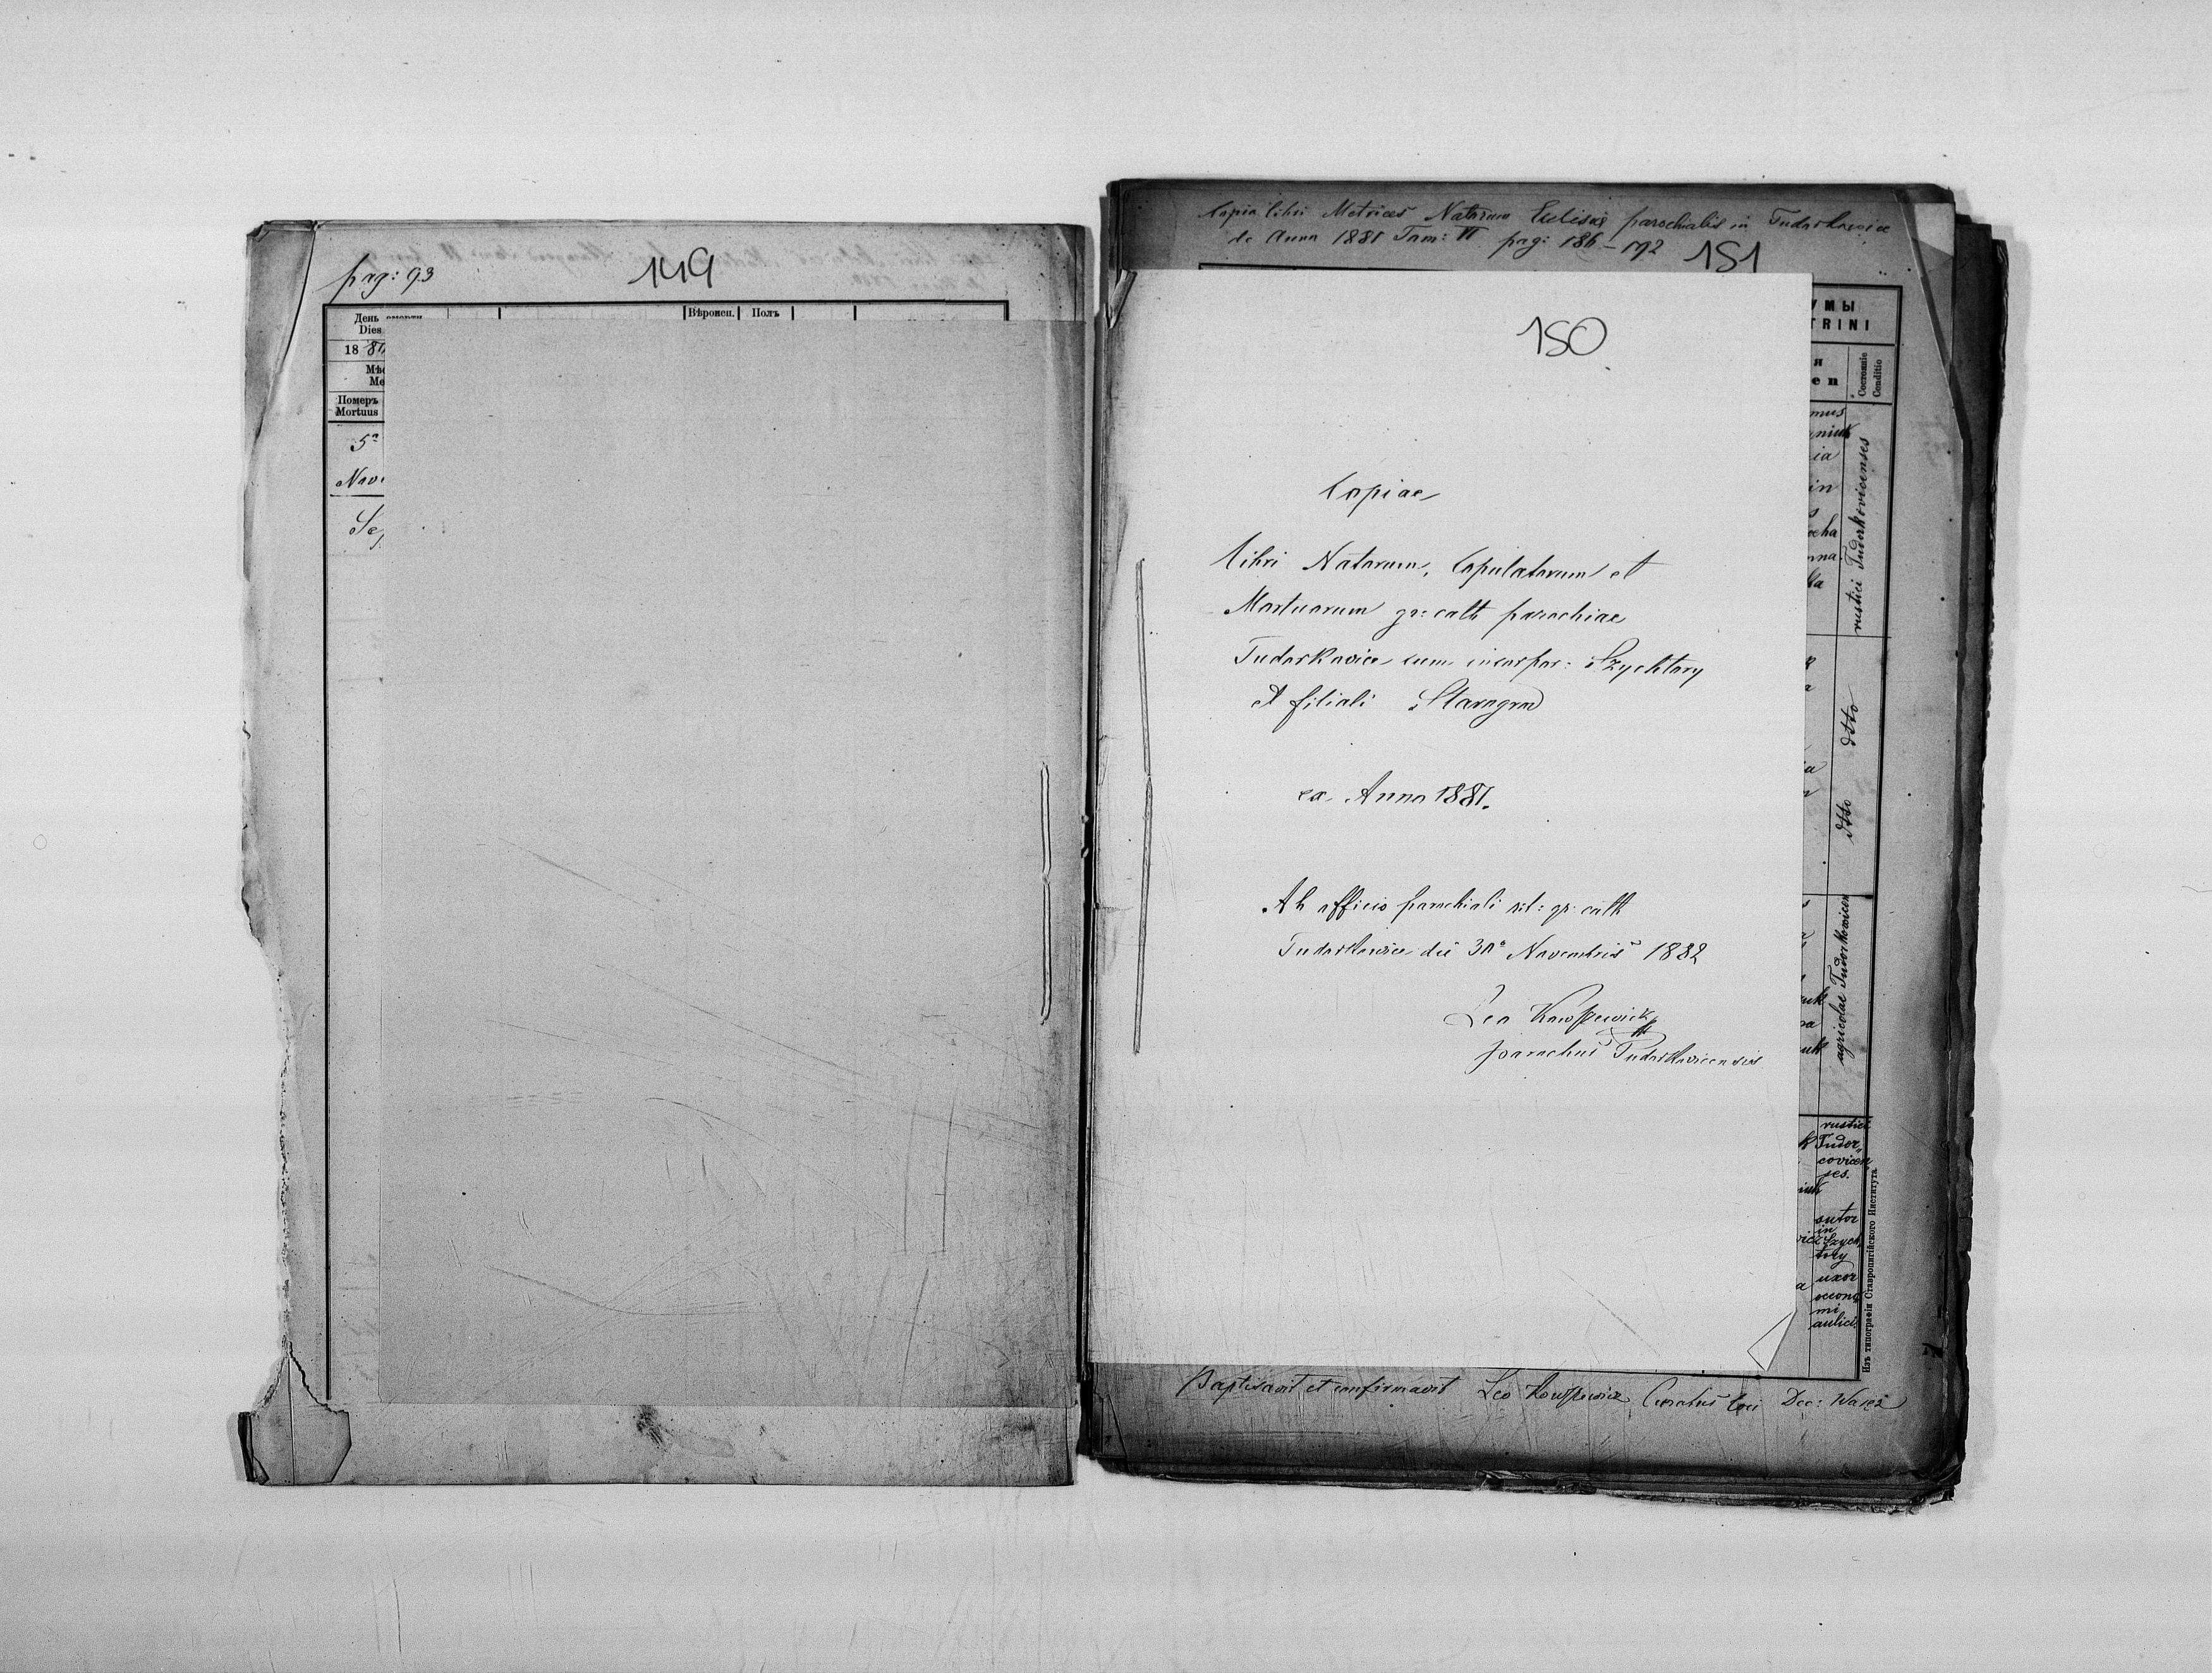 pag: 93
149
День смерти
Dies
18 81
Мѣс
Ме
Померъ
Mortuus
Вѣроисп.
Полъ
5ª
Nov
Sep
Copia libri Metrices Natorum Eclisiae parochialis in Tudorkowice
de Anno 1881 Tom: II pag: 186 - 192 151
150
Copiae
libri Natorum, Copulatorum et
Mortuorum gr: cath parochiae
Tudorkowice cum incorpor: Szychtory
et filiali Starogrod
ex Anno 1881.
Ab officio parochiali rit: gr: cath
Tudorkowice die 30ª Novembris 1882
Leo
parochus Tudorkovicensis
УМЫ
TRINI
я
en
Состояніе
Conditio
mus
aniuk
ia
in
s
ocha
nna
rustici Tudorkovicenses
dtto
dtto
agricolae Tudorkovicen
uk
uk
rustici
Tudor„
covicen
ses.
iuk
sutor
in
Szych„
tory
a uxor
oecono
mi
aulici.
Изъ типографіи Ставропигійского Института.
Baptisavit et confirmavit Leo Curatus loci Dec: Waręż